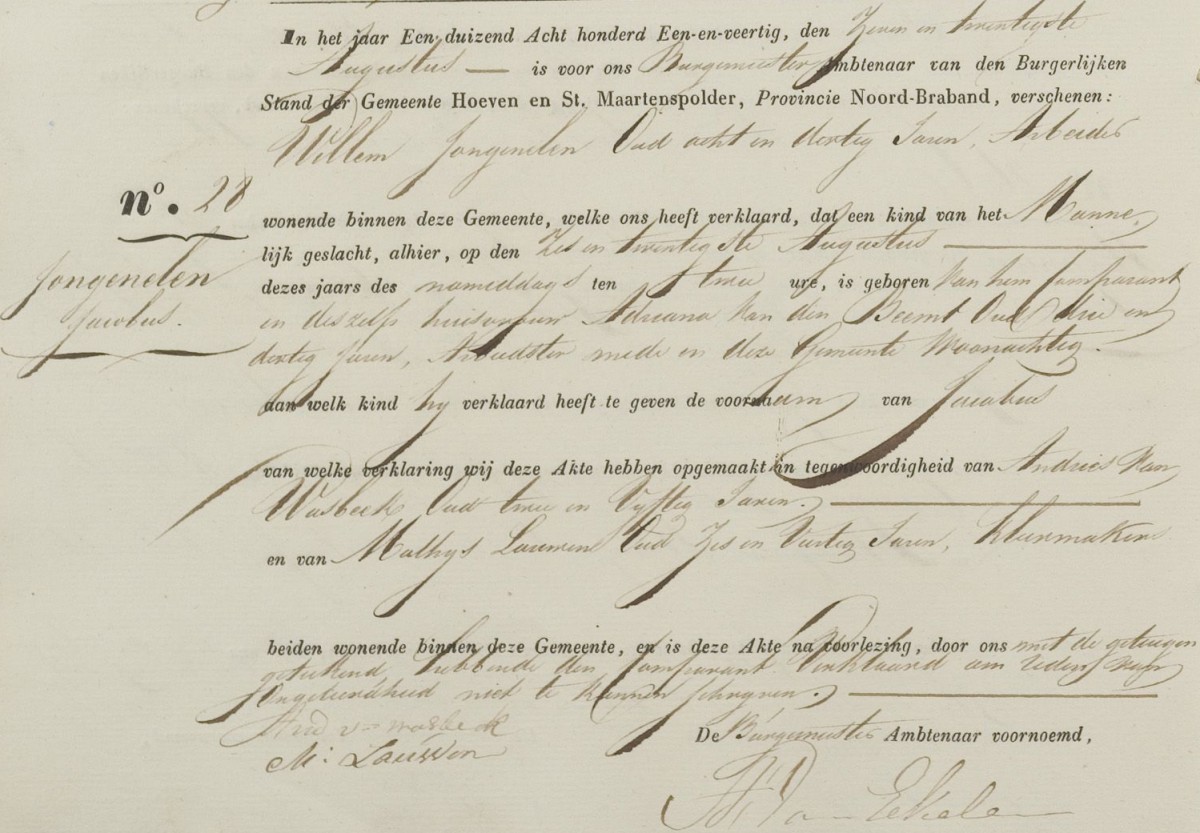 In het jaar Een duizend Acht honderd Een-en-veertig, den Zeven en twentigste
Augustus — is voor ons Burgemeester Ambtenaar van den Burgerlijken
Stand der Gemeente Hoeven en St. Maartenspolder, Provincie Noord-Braband, verschenen:
Willem Jongenelen Oud acht en dertig Jaren, Arbeider
nº. 28
wonende binnen deze Gemeente, welke ons heeft verklaard, dat een kind van het Manne
lijk geslacht, alhier, op den Zes en twentigste Augustus
Jongenelen
Jacobus.
dezes jaars des nameddags ten twee ure, is geboren van hem Comparant
en deszelfs huisvrouw Adriana van den Beemt Oud drie en
dertig Jaren, Arbeidster mede in deze Gemeente Woonachtig.
aan welk kind hy verklaard heeft te geven de voornaam van Jacobus
van welke verklaring wij deze Akte hebben opgemaakt in tegenwoordigheid van Andries van
Wasbeek Oud twee en Vyftig Jaren.
en van Mathys Lauwen Oud Zes en Veertig Jaren, Kleermaker
beiden wonende binnen deze Gemeente, en is deze Akte na voorlezing, door ons met de getuigen
geteekend hebbende den Comparant Verklaard om reden van
Ongeleerdheid niet te kunnen schryven.
And v wasbeek
M: Lauwen
De Burgemeester Ambtenaar voornoemd,
Van Eekelen